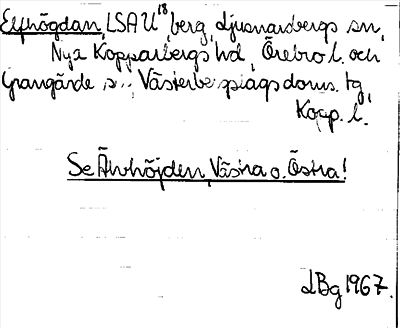 Elfhögdan, LSA U 18 berg, Ljusnarsbergs sn,
Nya Kopparbergs hd, Örebro l. och
Grangärde s.., Västerbergslags doms. tg,
Kopp. l.
Se Älvhöjden, Västra o. Östra!
LBg 1967.